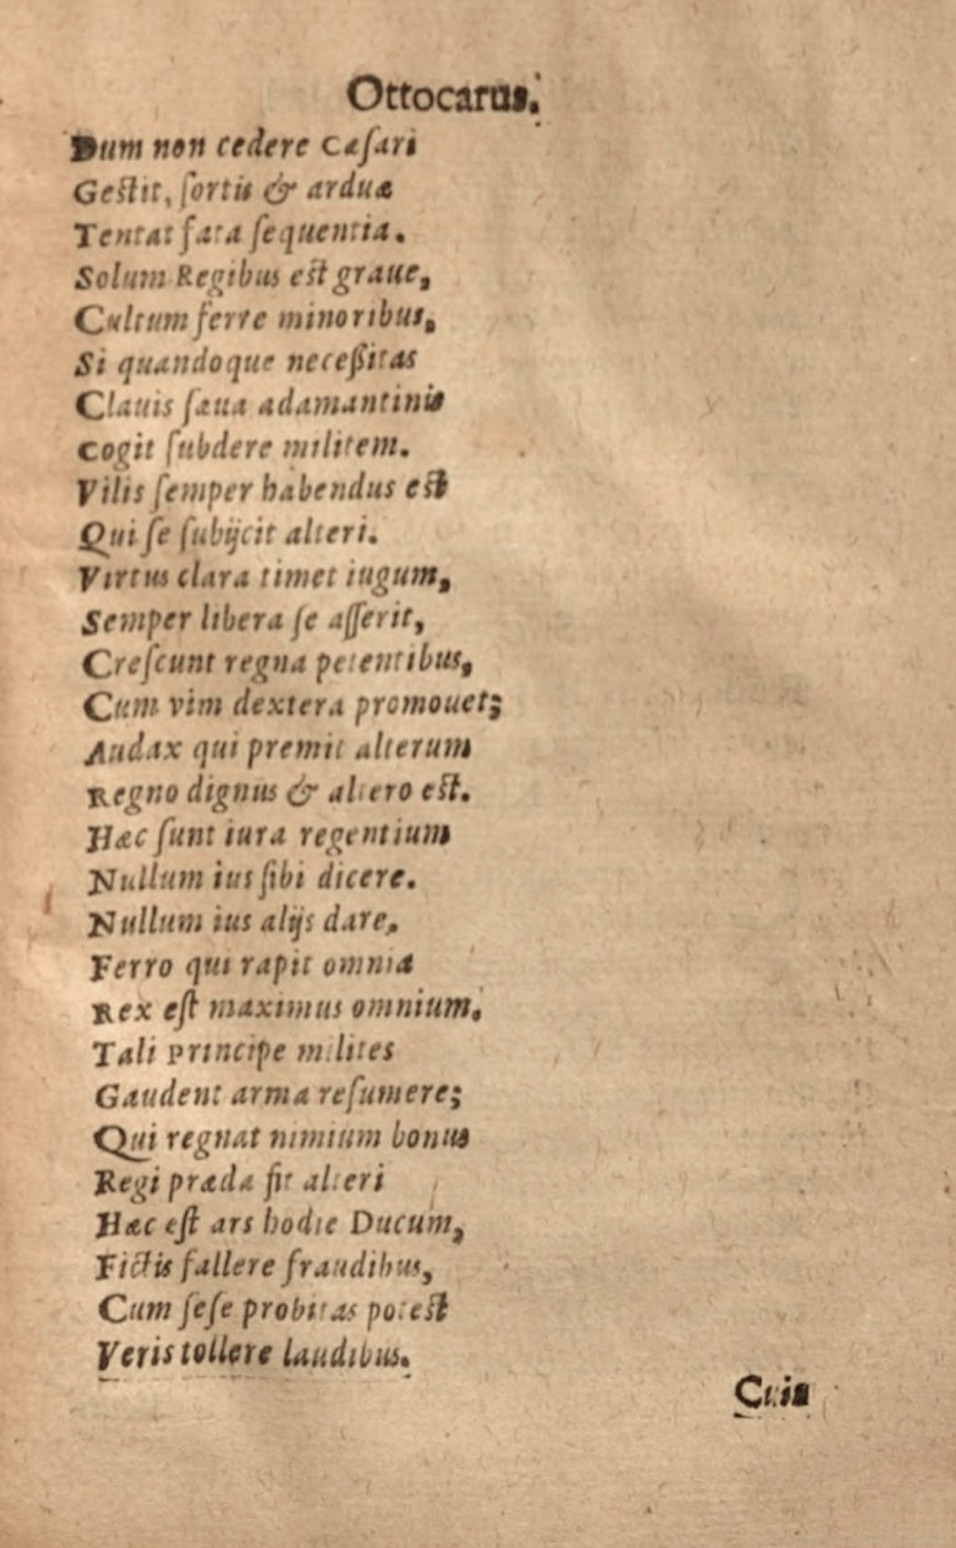 Ottocarus.
Dum non cedere Cæſari
Geſtit, ſortis & arduæ
Tentat fata ſequentia.
Solum Regibus eſt graue,
Cultum ferre minoribus,
Si quandoque neceßitas
Clauis ſæua adamantinis
Cogit ſubdere militem.
Vilis ſemper habendus eſt
Qui ſe ſubijcit alteri.
Virtus clara timet iugum,
Semper libera ſe aſſerit,
Creſcunt regna petentibus,
Cum vim dextera promouet;
Audax qui premit alterum
Regno dignus & altero eſt.
Hæc ſunt iura regentium
Nullum ius ſibi dicere.
Nullum ius alijs dare,
Ferro qui rapit omnia
Rex eſt maximus omnium.
Tali Principe milites
Gaudent arma reſumere;
Qui regnat nimium bonus
Regi præda fit alteri
Hæc eſt ars hodie Ducum,
Fictis fallere fraudibus,
Cum ſeſe probitas poteſt
Veris tollere laudibus.